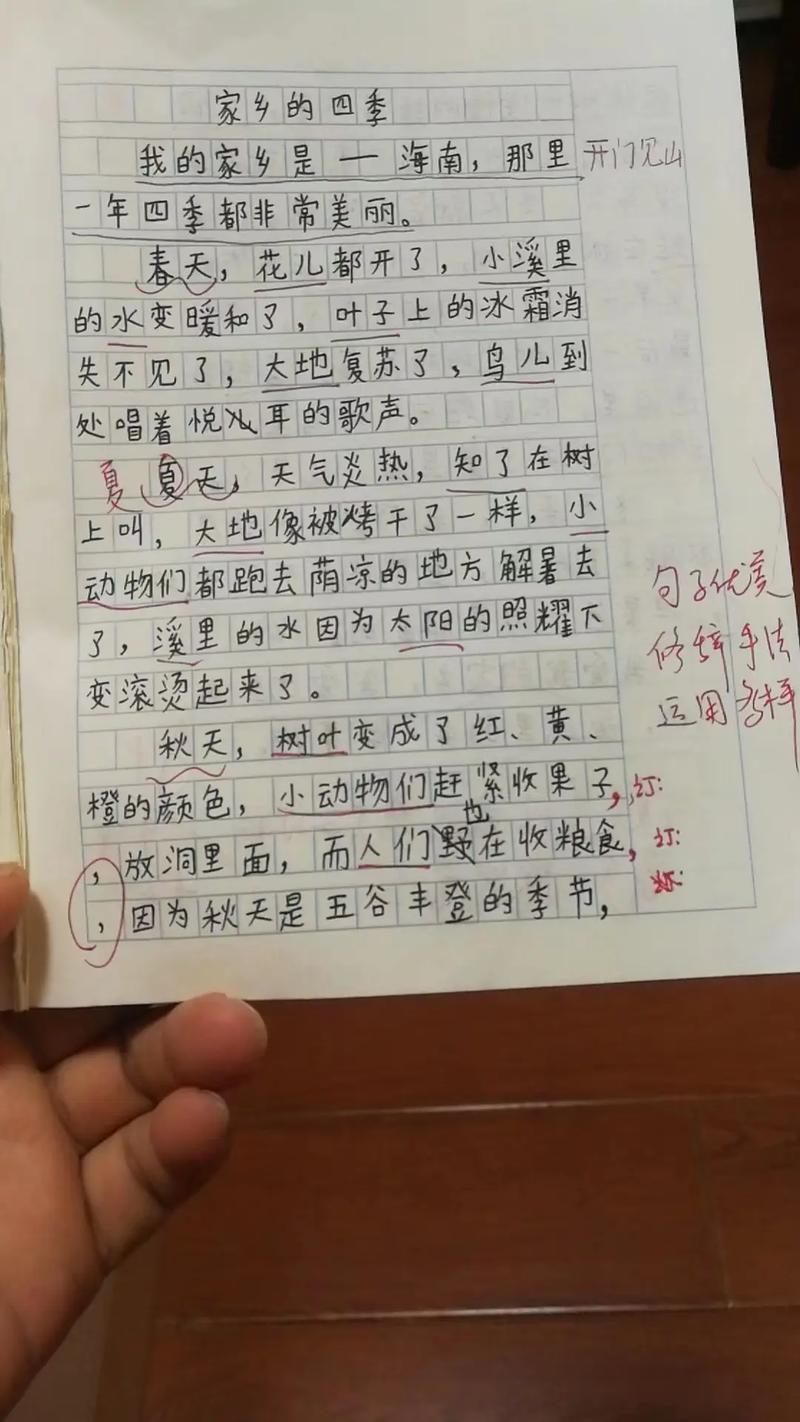 家乡的四季
我的家乡是一海南，那里
开门见山
一年四季都非常美丽。
春天，花儿都开了，小溪里
的水变暖和了，叶子上的冰霜消
失不见了，大地复苏了，鸟儿到
处唱着悦耳的歌声。
夏
夏天，天气炎热，知了在树
上叫，大地像被烤干了一样，小
动物们都跑去荫凉的地方解暑去
了，溪里的水因为太阳的照耀下
变滚烫起来了。
句子优美
修辞手法
运用多样
秋天，树叶变成了红、黄、
橙的颜色，小动物们赶紧收果子，订:
也
，放洞里面，而人们在收粮食，订:
，因为秋天是五谷丰登的季节，